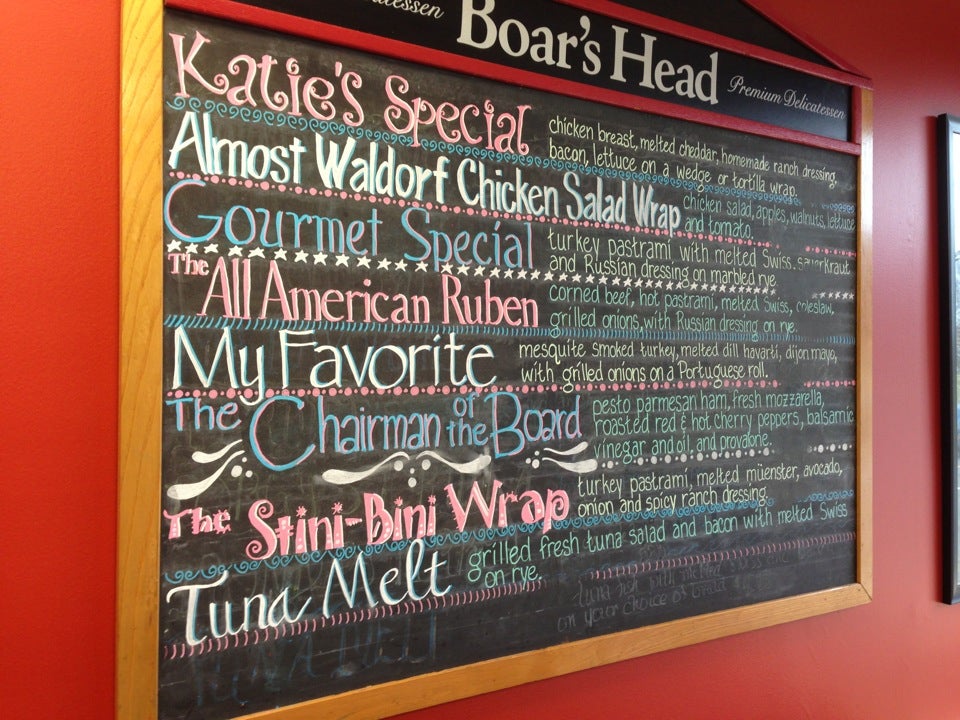 Delicatessen
Boar's Head
Premium Delicatessen
Katie's Special
chicken breast, melted cheddar, homemade ranch dressing,
bacon, lettuce on a wedge or tortilla wrap.
Almost Waldorf Chicken Salad Wrap
chicken salad, apples, walnuts, lettuce
and tomato.
Gourmet Special
turkey pastrami with melted Swiss, sauerkraut
and Russian dressing on marbled rye
The All American Ruben
corned beef, hot pastrami, melted Swiss, coleslaw,
grilled onions, with Russian dressing on rye.
My Favorite
mesquite smoked turkey, melted dill havarti, dijon mayo,
with grilled onions on a Portuguese roll.
The Chairman of the Board
pesto parmesan ham, fresh mozzarella,
roasted red & hot cherry peppers, balsamic
vinegar and oil, and provalone.
The Stini-Bini Wrap
turkey pastrami, melted müenster, avocado,
onion and spicy ranch dressing.
Tuna Melt
grilled fresh tuna salad and bacon with melted Swiss
on rye.
on your choice of
TUNA MELT